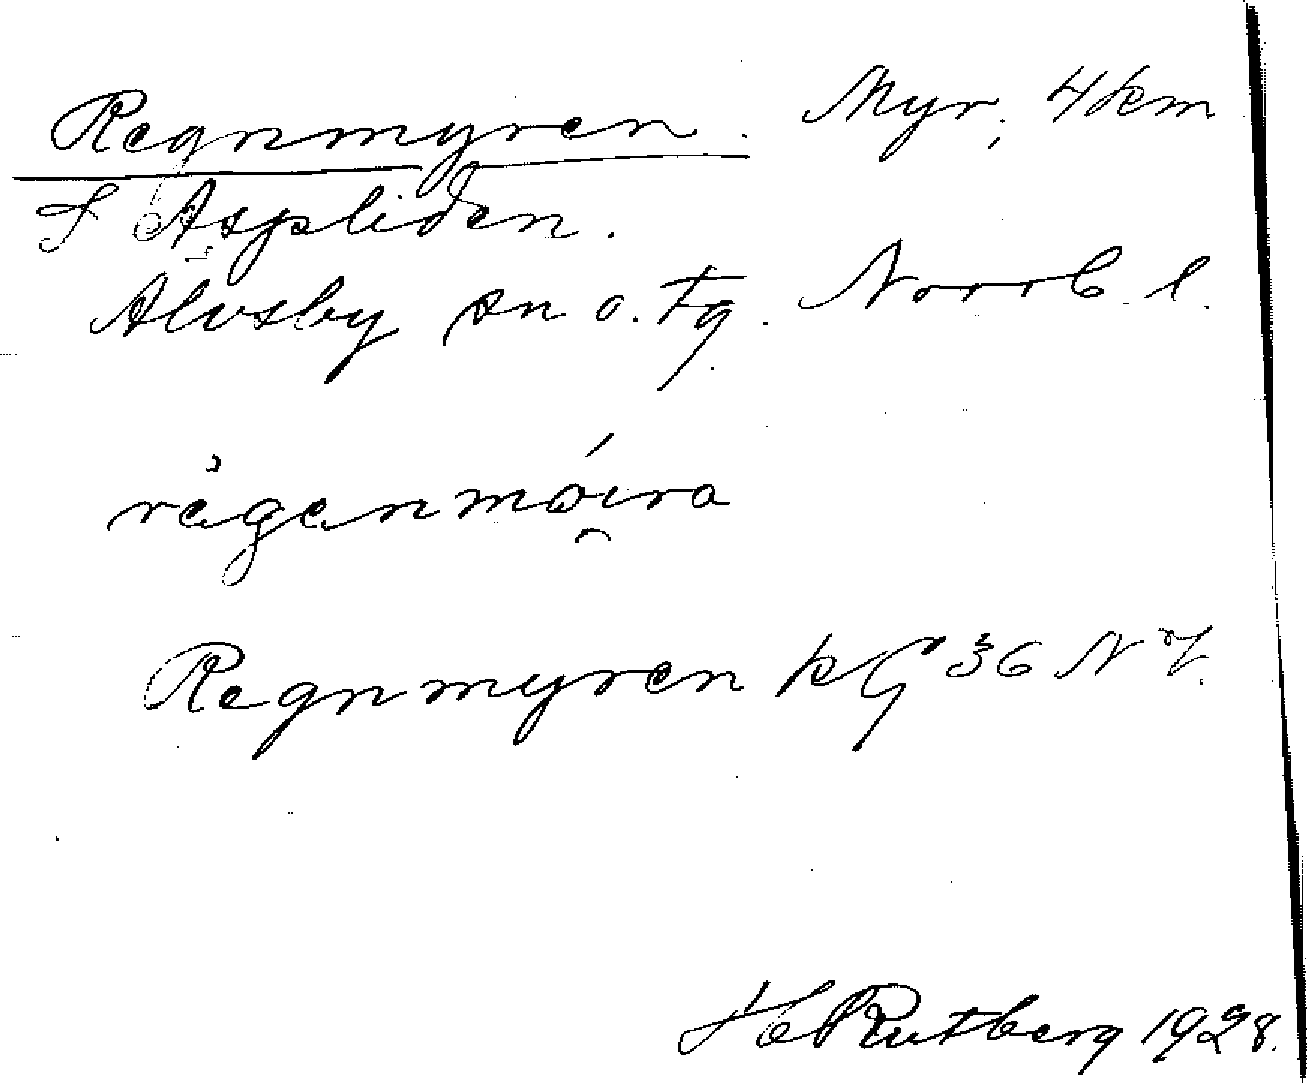 Regnmyren. Myr, 4 km
S Aspliden.
Älvsby sn o. tg. Norrb. l.
rägenmöira
Regnmyren kG 36 NV.
H Rutberg 1928.